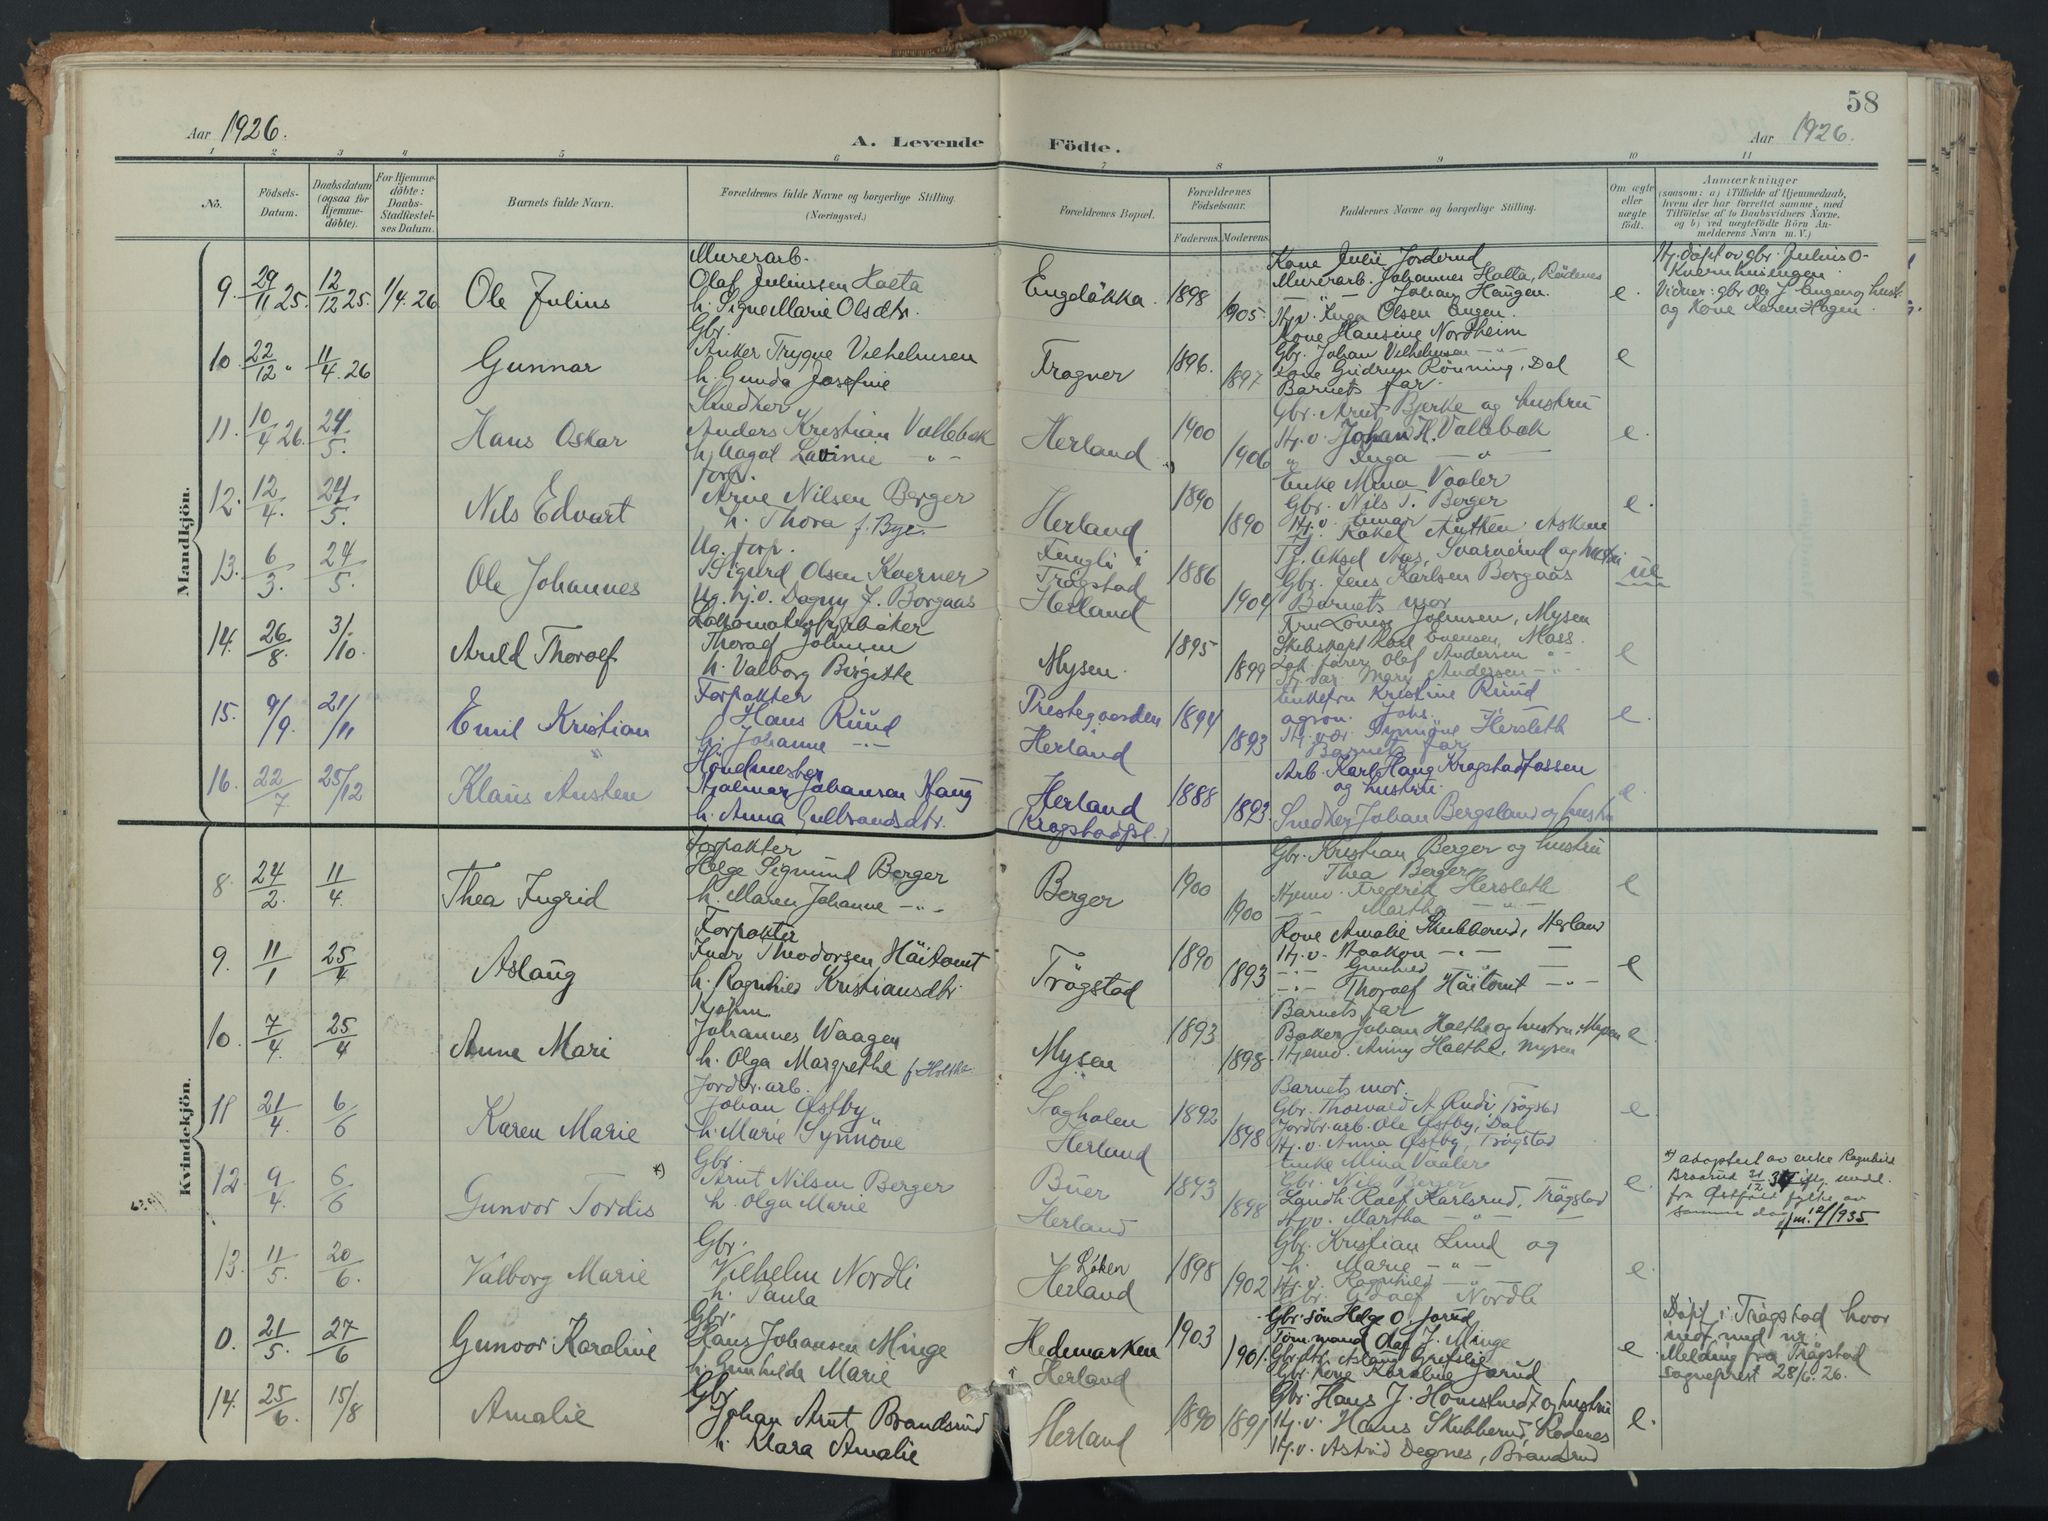 58
Aar 1926.
A. Levende Födte.
Aar 1926.
1 2 3 4 5 6 7 8 9 10 11
No.
Födsels-
Datum.
Daabsdatum
(ogsaa for
Hjemme-
döbte).
For Hjemme-
döbte:
Daabs-
Stadfæstel-
ses Datum.
Barnets fulde Navn.
Forældrenes fulde Navne og borgerlige Stilling.
(Næringsvei.)
Forældrenes Bopæl.
Forældrenes
Födselsaar.
Faderens. Moderens.
Faddernes Navne og borgerlige Stilling.
Om ægte
eller
uægte
födt.
Anmærkninger
(saasom: a) i Tilfælde af Hjemmedaab,
hvem der har forrettet samme, med
Tilföielse af to Daabsvidners Navne,
og b) ved uægtefödte Börn An-
melderens Navn m. V.)
Mandkjön.
9. 29/11 25. 12/12 25. 11/4. 26 Ole Julius
Murerarb.
Olaf Juliussen Haeta
h. Signe Marie Olsdtr.
Engeløkka. 1898 1905.
Kone Julie Jorderud
Murerarb. Johannes Halta, Rödenes
—"— Johan Haugen.
Hjv. Inga Olsen Engen.
e.
Hj.døpt av gbr. Julius O.
Kvernhusengen.
Vidner: gbr. Ole J. Engen og hustr.
og Kone Karen Hagen.
10. 22/12 " 11/4. 26 Gunnar
Gbr.
Anker Trygve Vilhelmsen
h. Gunda Josefine
Frogner 1896. 1897
Kone Hansine Nordheim
Gbr. Johan Vilhelmsen —"—
Kone Gudrun Rönning, Dal
Barnets far.
e
11. 10/4 26. 24/5. Hans Oskar
Snedker
Anders Kristian Vallebæk
h. Aagot Lavinie —"—
Herland 1900 1906
Gbr. Arnt Bjerke og hustru
Hj.v. Johan H. Vallebæk
" Inga —"—
e.
12. 12/4. 24/5. Nils Edvart
forp.
Arne Nilsen Berger
h. Thora f. Bye
Herland 1890 1890
Enke Mina Vaaler
Gbr. Nils T. Berger
Hj.v. Einar
Hj. Rakel Anthen. Askim
e.
13. 6/3. 24/5. Ole Johannes
Ug. forp.
Sigurd Olsen Kverner
Ug. hj.v. Dagny J. Borgaas
Trøgstad
Herland 1886 1904
Tj. Aksel Aas, Svarverud og hustru
Gbr. Jens Karlsen Borgaas
Barnets mor
ue
14. 26/8. 3/10. Arild Thoralf
Lokomotivfyrbøter
Thoralf Johnsen
h. Valborg Birgitte
Mysen. 1895 1899
Fru Louise Johnsen, Mysen
Skibskapt. Karl Svensen, Moss.
Lok.fører Olaf Andersen —"—
Hj.vær. Mary Andersen —"—
e
15. 9/9. 21/11 Emil Kristian
Forpakter
Hans Ruud
h. Johanne —"—
Prestegaarden
Herland 1894 1893
Enkefru Kristine Ruud
agron. Johs. —"—
Hj.vær. Synnöve Hersleth
Barnets far
e.
16. 22/7 25/12 Klaus Austen
Hondmester
Hjalmar Johansen Haug
h. Anna Gulbrandsdtr.
Herland
(Krogstadfjl.) 1888 1893.
Arb. Karl Haug Krogstadfossen
og hustru.
Snedker Johan Bergsland og hustru
e
Kvindekjön.
8. 24/2. 11/4. Thea Ingrid
Forpakter
Helge Sigmund Berger
h. Maren Johanne —"—
Berger 1900 1900
Gbr. Kristian Berger og hustru
Thea Berger
Hjemv. Fredrik Hersleth
—"— Martha —"—
e
9. 11/1 25/4 Aslaug
Forpakter
Ivar Theodorsen Häitomt
h. Ragnhild Kristiansdtr.
Trøgstad 1890 1893
Kone Amalie Skubberud, Herland
Hj.v. Haakon —"— —
—"— Gunhild " —
—"— Thoralf Häitomt —"—
e
10. 7/4. 25/4 Anne Mari
Kjøbm.
Johannes Waagen
h. Olga Margrethe f. Holthe
Mysen 1893 1898.
Barnets far
Baker Johan Holthe og hustru, Mysen
Hjemv. Anny Holthe, Mysen
e
11 21/4. 6/6 Karen Marie
Jordbr.arb.
Johan Østby
h. Marie Synnöve
Sagholen
Herland 1892 1898
Barnets mor.
Gbr. Thorvald A. Rudi, Trøgstad
Jordbr.arb. Ole Østby, Dal
Hj.v. Anna Østby, Trøgstad
e.
12. 9/4. 6/6 Gunvor Tordis *)
Gbr.
Arnt Nilsen Berger
h. Olga Marie
Buer
Herland 1893 1898
Enke Mina Vaaler
Gbr. Nils Berger
Landh. Ralf Karlsrud, Trøgstad
Hj.v. Martha —"— —
e.
*) adoptert av enke Ragnhild
Braarud 31/12 34 iflg. medd.
fra Østfold fylke av
samme dag
13. 11/5. 20/6. Valborg Marie
Gbr.
Vilhelm Nordli
h. Paula
Løken
Herland 1898 1902
Gbr. Kristian Lund og
h. Marie —"—
Hj.v. Ragnhild —"—
Gbr. Edvef Nordli
e.
0. 21/5. 27/6 Gunvor Karoline
Gbr.
Hans Johansen Minge
h. Gunhilde Marie
Hedemarken
i Herland 1903 1901.
Gbr.sön Helge O. Jorud
Töm.mand Olaf J. Minge
Gbr.dtr. Aslaug Grefslie
Gbr.kone Karoline Jorud
e.
Døpt i Trøgstad hvor
indf. med nr.
Melding fra Trøgstad
sogneprest 28/6. 26.
14. 25/6. 15/8 Amalie
Gbr.
Johan Arnt Brandsrud
h. Klara Amalie
Herland 1890 1891
Gbr. Hans J. Homslund og hustru
Hj.v. Hans Skubberud, Rødenes
Hj.v. Astrid Degnes, Brandsrud
e.